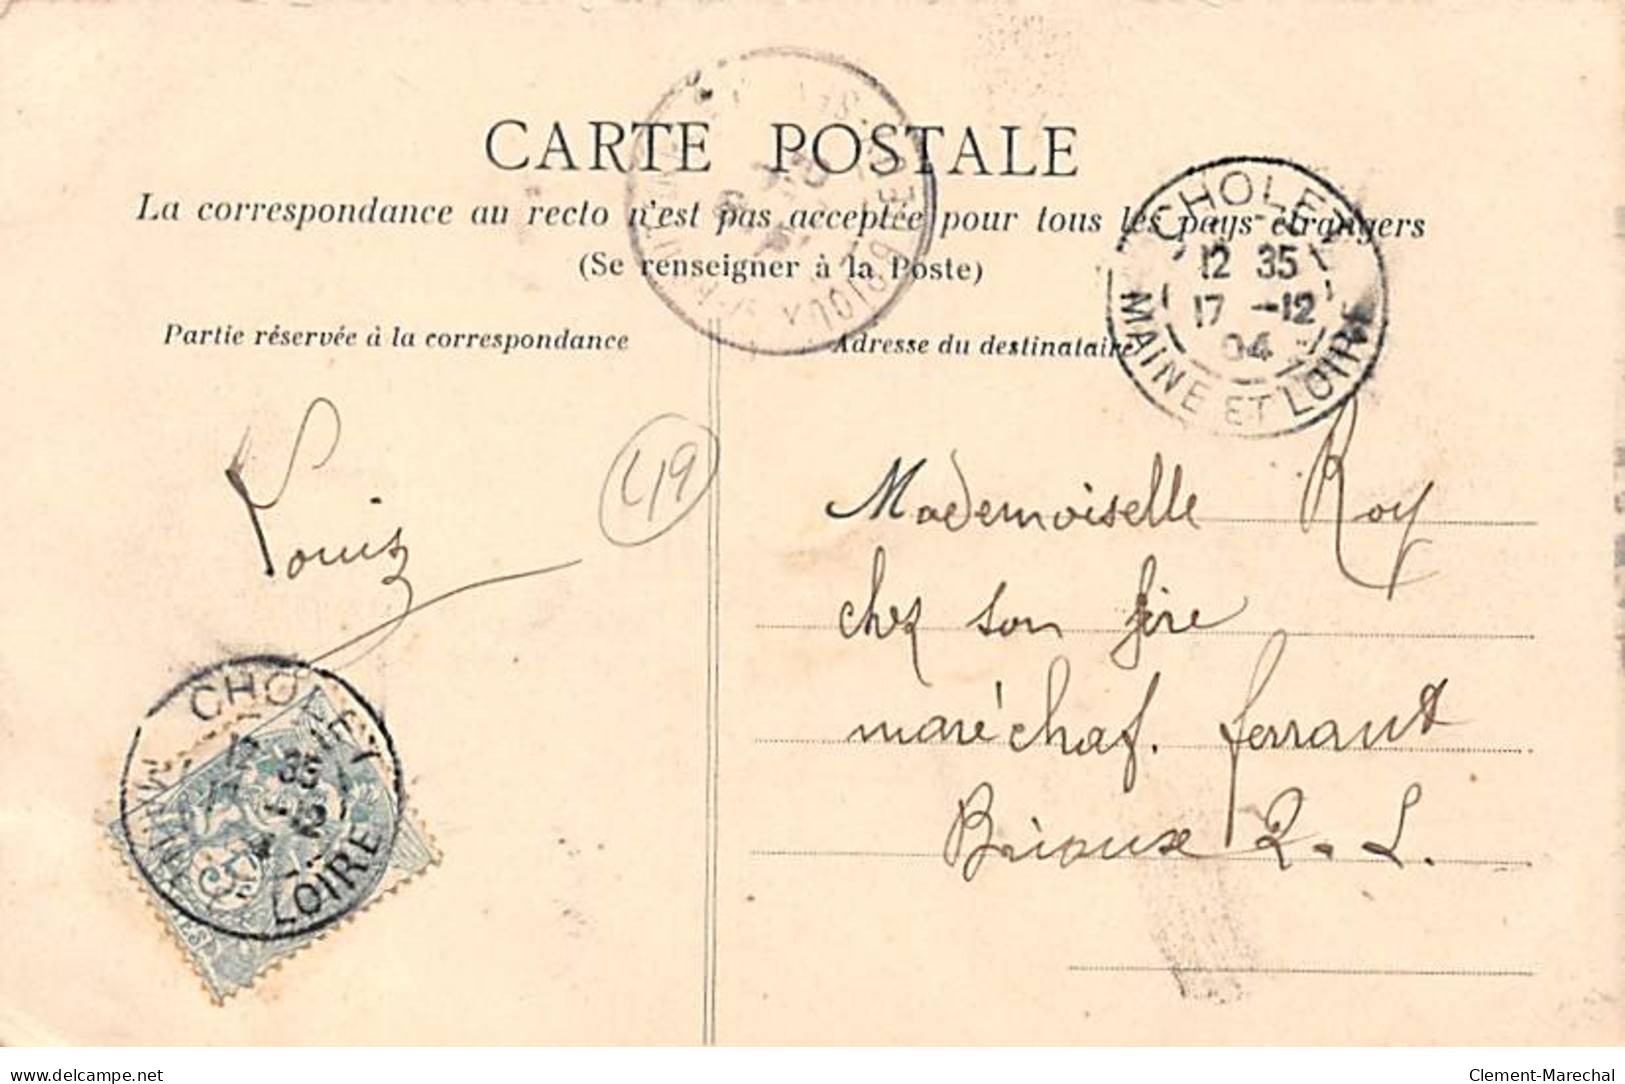 CARTE POSTALE
La correspondance au recto n'est pas acceptée pour tous les pays étrangers
(Se renseigner à la Poste)
Partie réservée à la correspondance
Adresse du destinataire
CHOLET
12 35
17 -12
04
MAINE ET LOIRE
BRIOUX
Louis
49
Mademoiselle Roy
chez son père
maréchal. ferrant
Brioux 2. S.
CHOLET
12 35
-12
MAINE
LOIRE
5
delcampe.net
Clement-Marechal